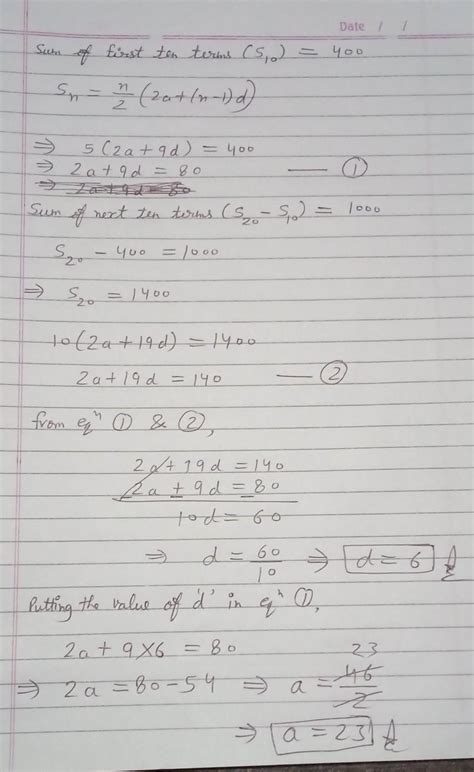 Date / /
Sum of first ten terms (S₁₀) = 400
Sn = n/2 (2a+(n-1)d)
⇒ 5(2a+9d) = 400
⇒ 2a+9d = 80 —— ①
⇒ 2a+9d = 80
Sum of next ten terms (S₂₀ - S₁₀) = 1000
S₂₀ - 400 = 1000
⇒ S₂₀ = 1400
10(2a+19d) = 1400
2a+19d = 140 —— ②
from eqⁿ ① & ②,
2a+19d = 140
2a ± 9d = 80
10d = 60
⇒ d = 60/10 ⇒ d = 6
Putting the value of 'd' in eqⁿ ①,
2a + 9×6 = 80
⇒ 2a = 80-54 ⇒ a = 46/2 23
⇒ a = 23